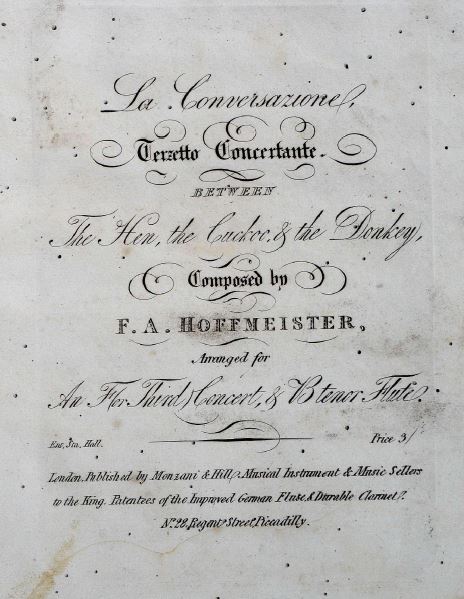 La Conversazione,
Terzetto Concertante.
BETWEEN
The Hen, the Cuckoo, & the Donkey,
Composed by
F. A. HOFFMEISTER,
Arranged for
An F or Third, Concert, & B tenor Flute.
Ent. Sta. Hall. Price 3/
London, Published by Monzani & Hill, Musical Instrument & Music Sellers
to the King. Patentees of the Improved German Flute, & Durable Clarinet.
No. 28, Regent Street, Piccadilly.